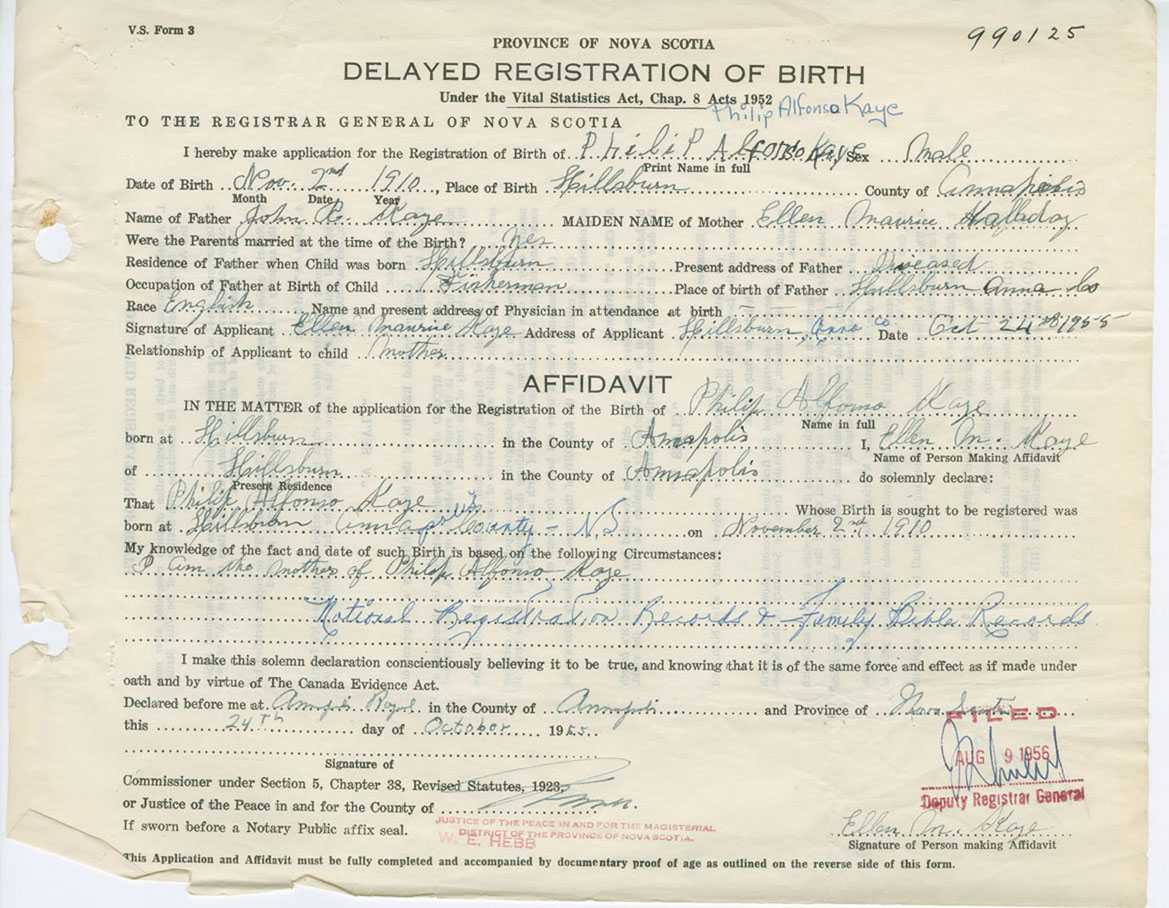 V.S. Form 3
990125
PROVINCE OF NOVA SCOTIA
DELAYED REGISTRATION OF BIRTH
Under the Vital Statistics Act, Chap. 8 Acts 1952
Philip Alfonso Kaye
TO THE REGISTRAR GENERAL OF NOVA SCOTIA
I hereby make application for the Registration of Birth of Philip Alfonso Kaye Sex Male
Print Name in full
Date of Birth Nov. 2nd 1910, Place of Birth Hillsburn County of Annapolis
Month Date Year
Name of Father John R. Kaye MAIDEN NAME of Mother Ellen Maurice Halliday
Were the Parents married at the time of the Birth? Yes
Residence of Father when Child was born Hillsburn Present address of Father Diseased
Occupation of Father at Birth of Child Fisherman Place of birth of Father Hillsburn Anna Co
Race English Name and present address of Physician in attendance at birth
Signature of Applicant Ellen Maurice Kaye Address of Applicant Hillsburn, Anna Co. Date Oct 24th 1955
Relationship of Applicant to child Mother
AFFIDAVIT
IN THE MATTER of the application for the Registration of the Birth of Philip Alfonso Kaye
Name in full
born at Hillsburn in the County of Annapolis I, Ellen M. Kaye
Name of Person Making Affidavit
of Hillsburn in the County of Annapolis do solemnly declare:
Present Residence
That Philip Alfonso Kaye Whose Birth is sought to be registered was
born at Hillsburn Annapolis County - N.S. on November 2nd 1910
My knowledge of the fact and date of such Birth is based on the following Circumstances:
I am the mother of Philip Alfonso Kaye
National Registration Records & Family Bible Records
I make this solemn declaration conscientiously believing it to be true, and knowing that it is of the same force and effect as if made under
oath and by virtue of The Canada Evidence Act.
Declared before me at Annapolis Royal in the County of Annapolis and Province of Nova Scotia
this 24th day of October 1955
FILED
AUG 9 1956
Deputy Registrar General
Signature of
Commissioner under Section 5, Chapter 38, Revised Statutes, 1923,
or Justice of the Peace in and for the County of
JUSTICE OF THE PEACE IN AND FOR THE MAGISTERIAL
DISTRICT OF THE PROVINCE OF NOVA SCOTIA.
W. E. HEBB
If sworn before a Notary Public affix seal.
Ellen M. Kaye
Signature of Person making Affidavit
This Application and Affidavit must be fully completed and accompanied by documentary proof of age as outlined on the reverse side of this form.